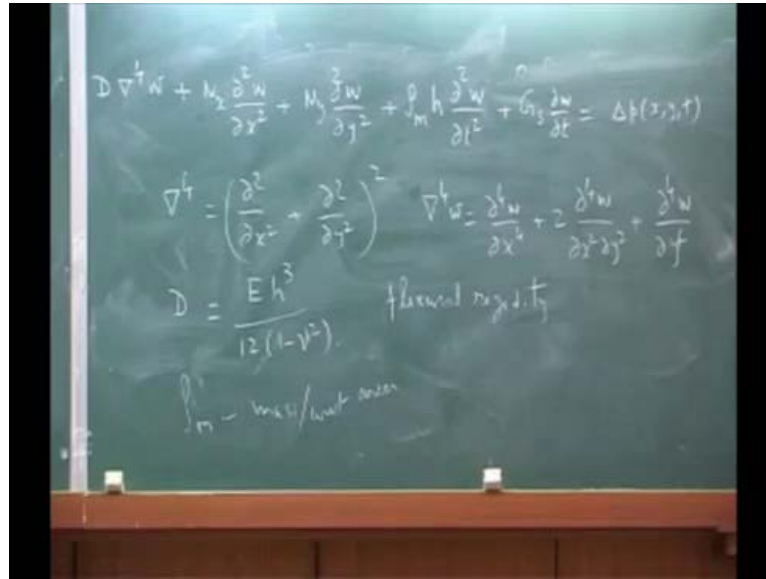 D ∇⁴w + Nₓ ∂²w/∂x² + N_y ∂²w/∂y² + ρₘ h ∂²w/∂t² + G₃ ∂w/∂t = Δp(x,y,t)
∇⁴ = (∂²/∂x² + ∂²/∂y²)² ∇⁴w = ∂⁴w/∂x⁴ + 2 ∂⁴w/∂x²∂y² + ∂⁴w/∂y⁴
D = E h³/12(1-ν²). flexural rigidity
ρₘ - mass/unit area